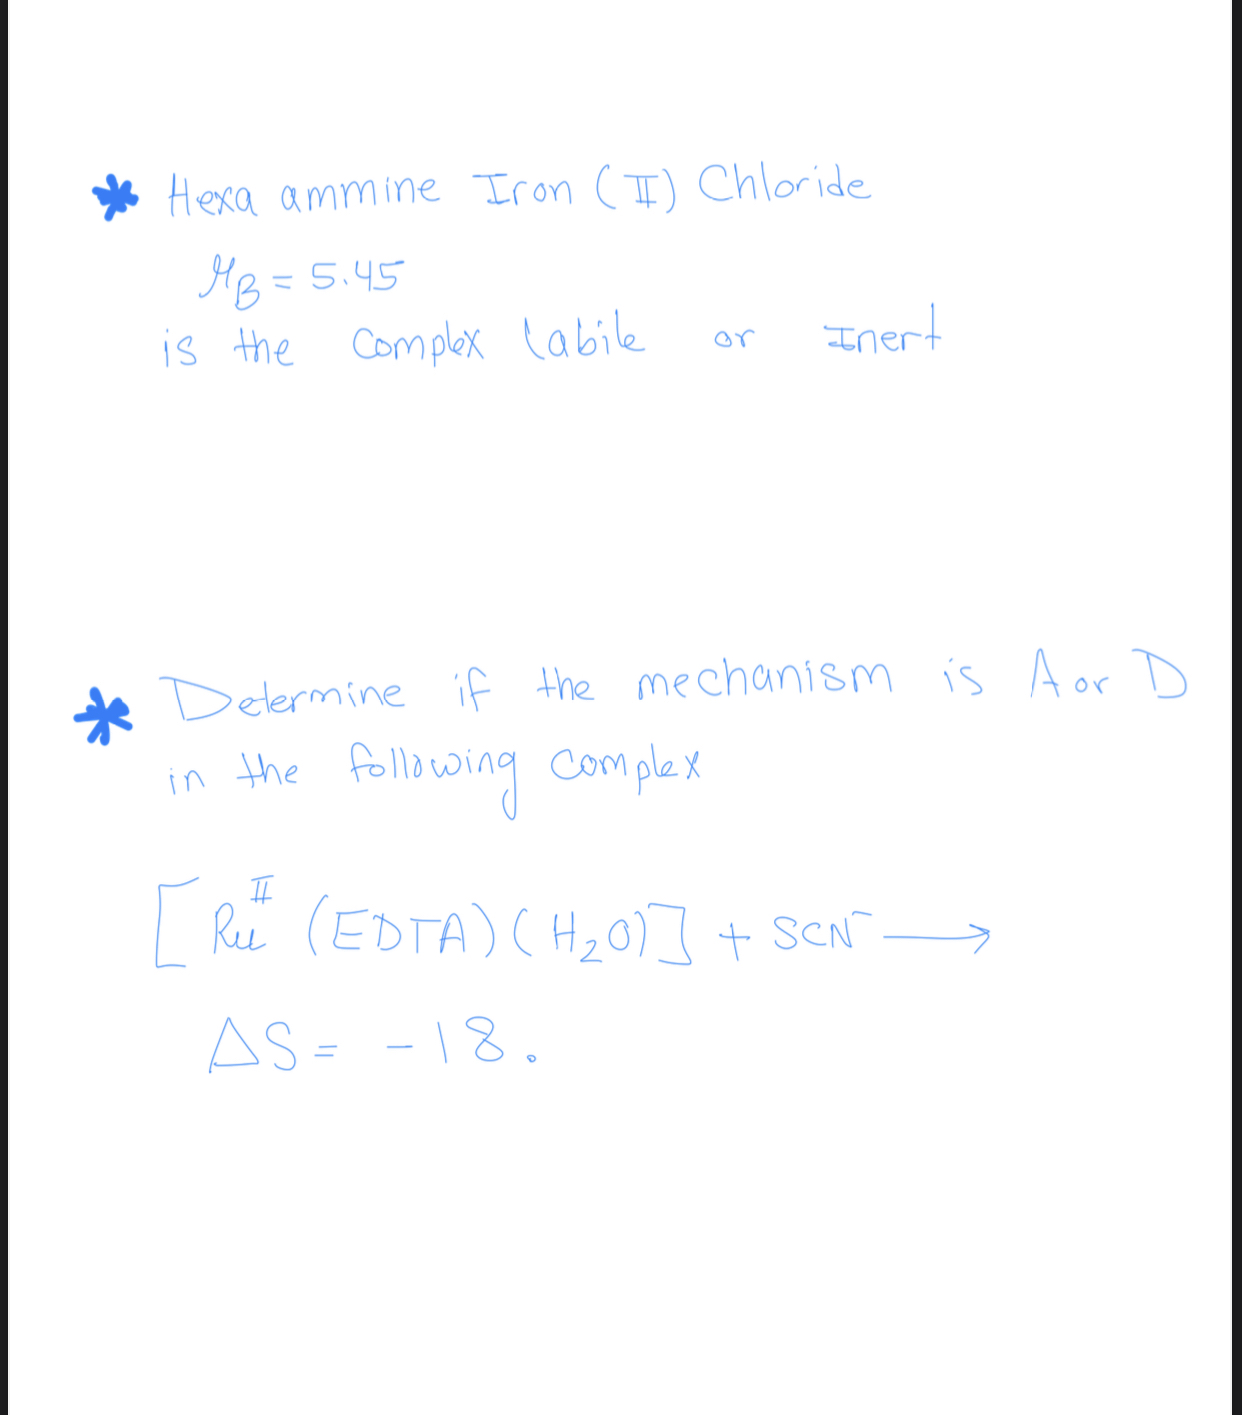 * Hexa ammine Iron (II) Chloride
μB = 5.45
is the complex labile or Inert
* Determine if the mechanism is A or D
in the following complex
[Ruᴵᴵ (EDTA)(H₂O)] + SCN⁻ ⟶
ΔS = -18.